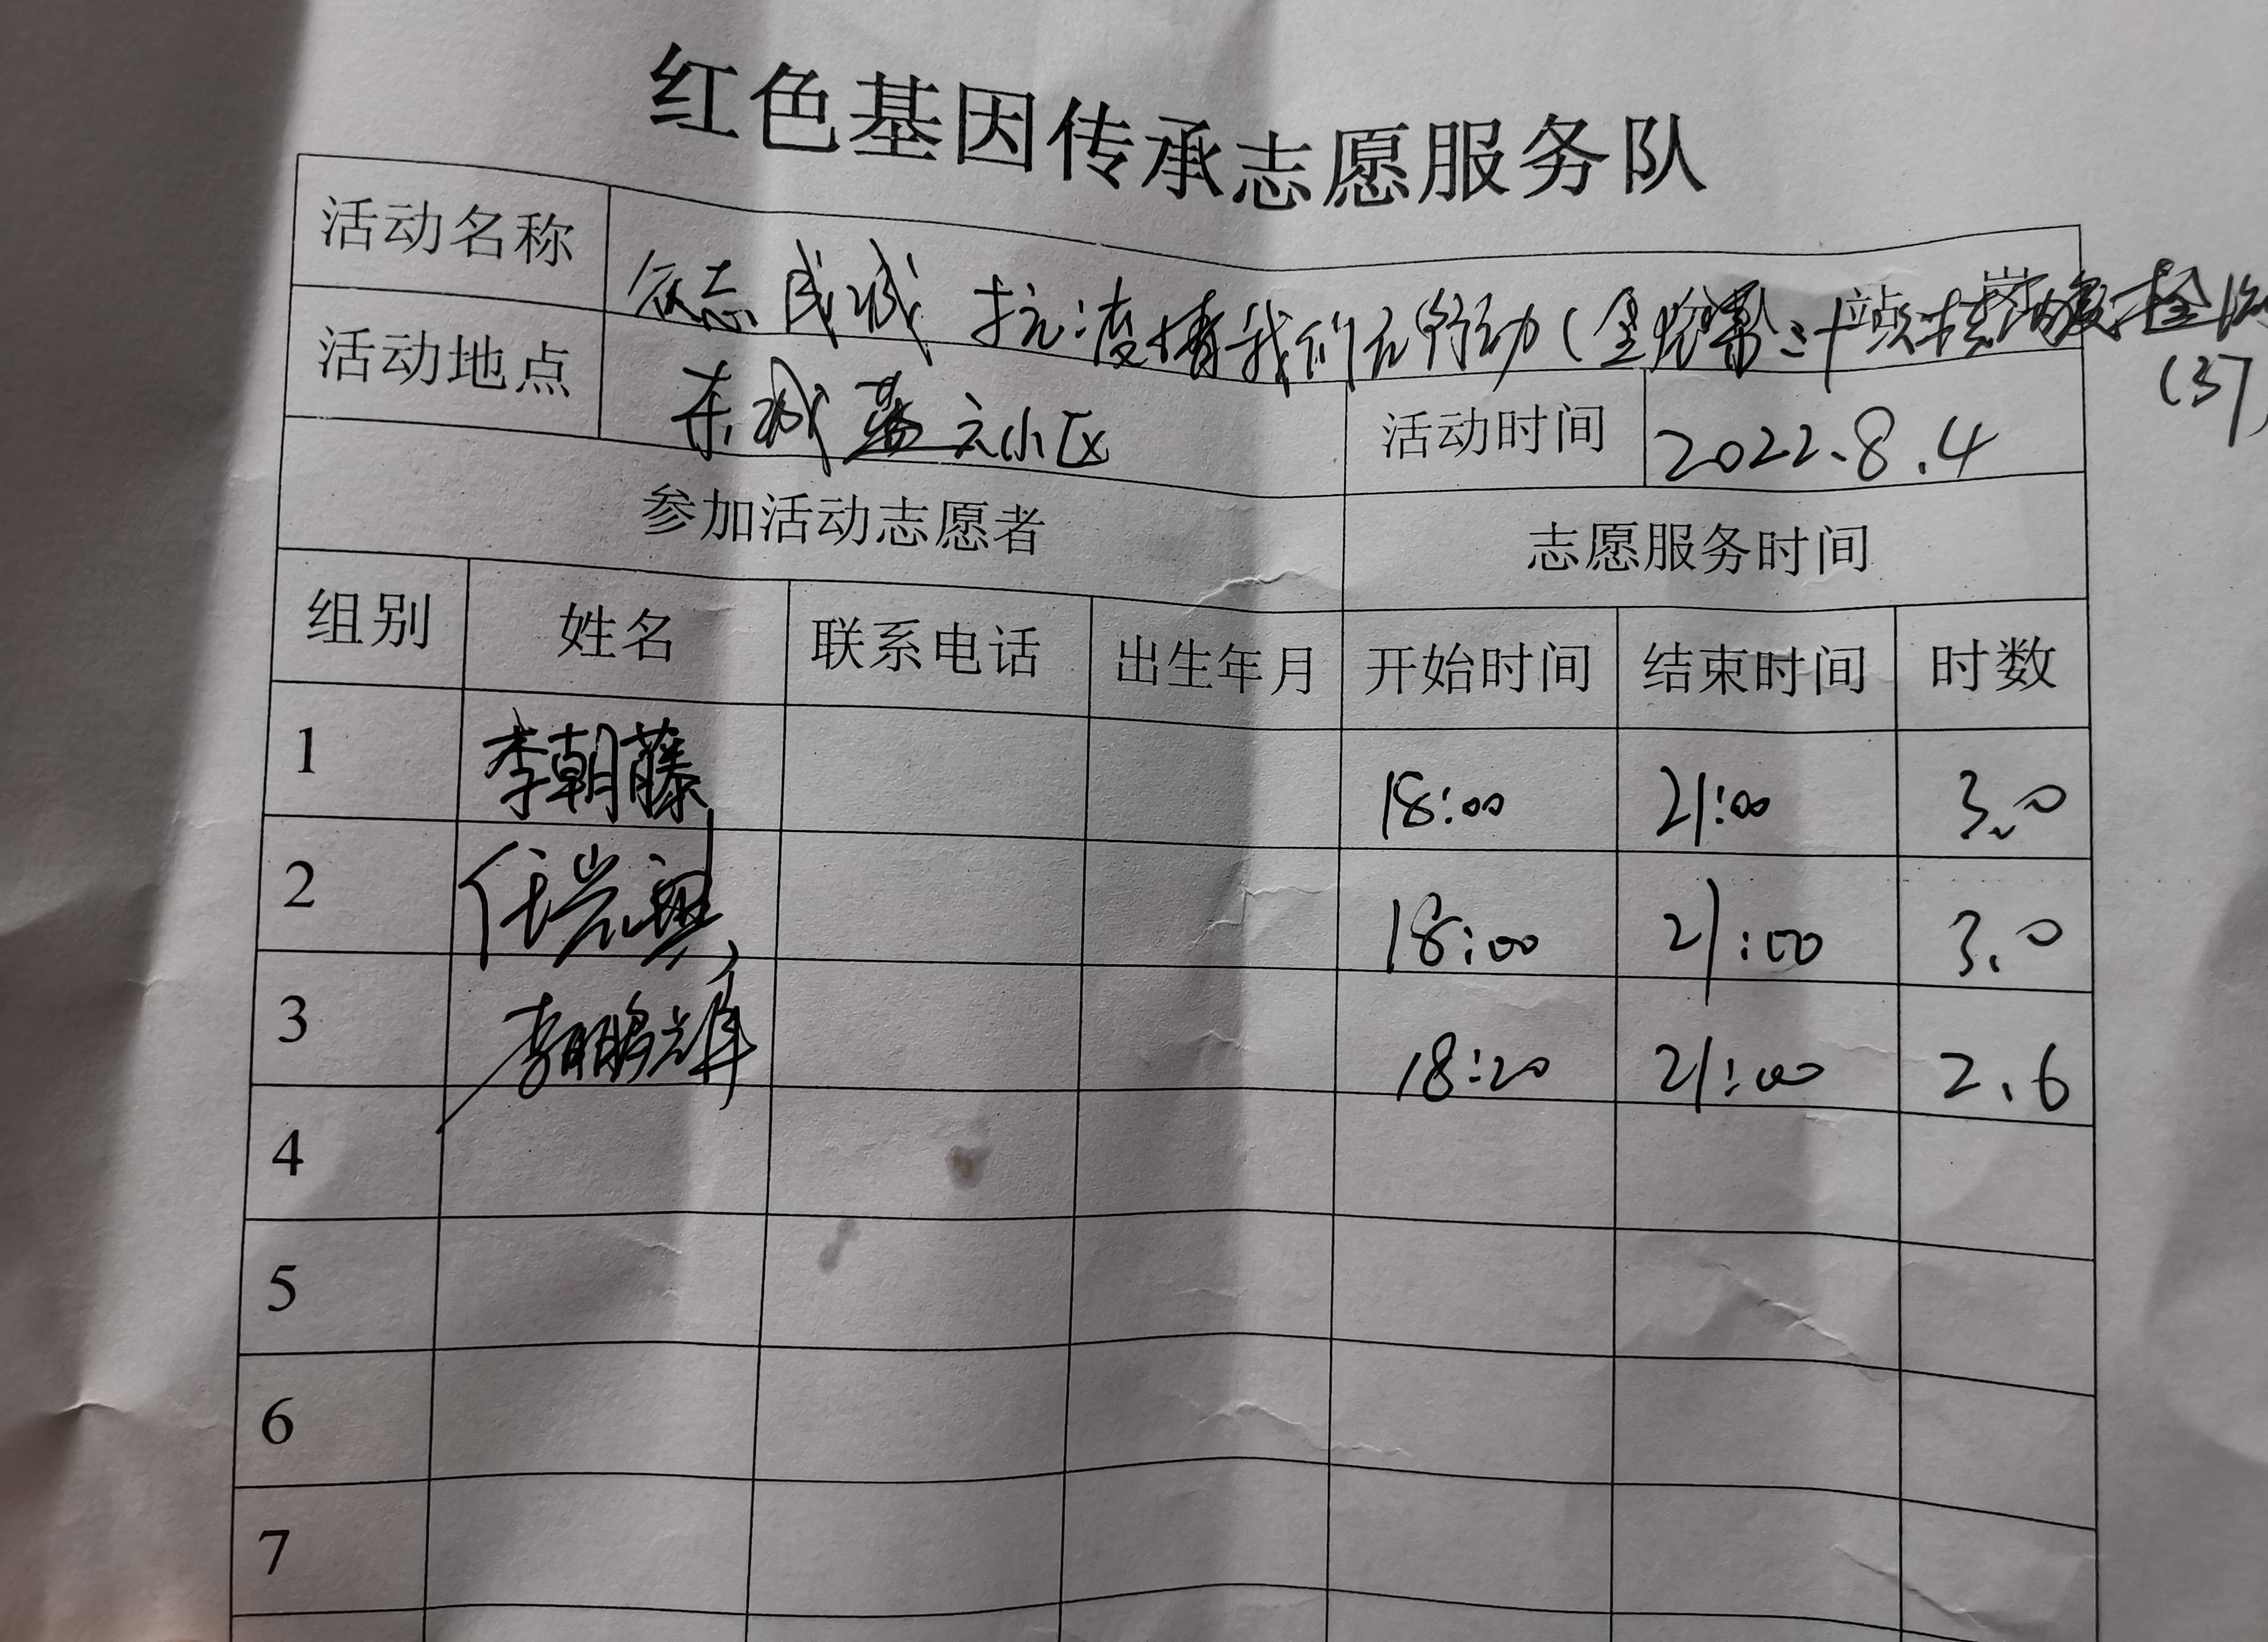 红色基因传承志愿服务队
活动名称 众志成城 抗疫情我们在行动(
(37)
活动地点 东城 小区 活动时间 2022.8.4
参加活动志愿者 志愿服务时间
组别 姓名 联系电话 出生年月 开始时间 结束时间 时数
1 李朝藤 18:00 21:00 3.0
2 任 18:00 21:00 3.0
3 李鹏辉 18:20 21:00 2.6
4
5
6
7